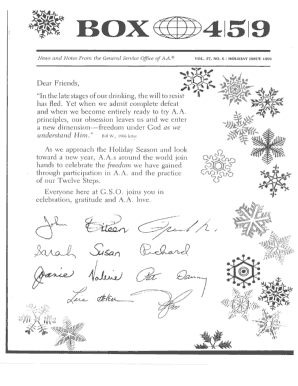 BOX 4 5 9
News and Notes From the General Service Office of A.A.®
VOL. 37, NO. 6 / HOLIDAY ISSUE 1991
Dear Friends,
“In the late stages of our drinking, the will to resist
has fled. Yet when we admit complete defeat
and when we become entirely ready to try A.A.
principles, our obsession leaves us and we enter
a new dimension—freedom under God as we
understand Him.” Bill W., 1966 letter
As we approach the Holiday Season and look
toward a new year, A.A.s around the world join
hands to celebrate the freedom we have gained
through participation in A.A. and the practice
of our Twelve Steps.
Everyone here at G.S.O. joins you in
celebration, gratitude and A.A. love.
John Eileen
Sarah Susan Richard
Joanie Valerie Pat Danny
Lois